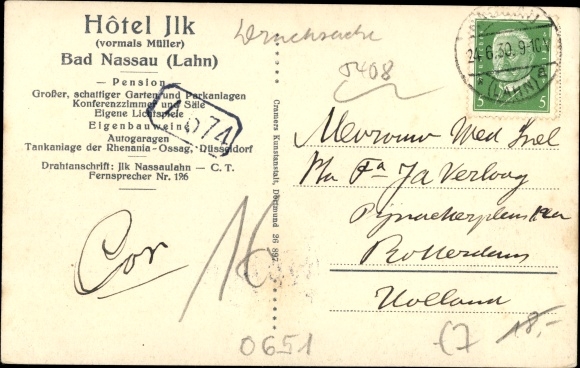 Hôtel Jlk
(vormals Müller)
Bad Nassau (Lahn)
— Pension —
Großer, schattiger Garten und Parkanlagen
Konferenzzimmer und Säle
Eigene Lichtspiele
Eigenbauweine
Autogaragen
Tankanlage der Rhenania-Ossag, Düsseldorf
Drahtanschrift: Jlk Nassaulahn — C. T.
Fernsprecher Nr. 186
Cor
Cramers Kunstanstalt, Dortmund 26 892
Drucksache
5408
24.6.30. 9-10V
(LAHN)
5 5
Mevrouw Wed
Fa Ja Verloog
Rotterdam
Holland
0651
18,-